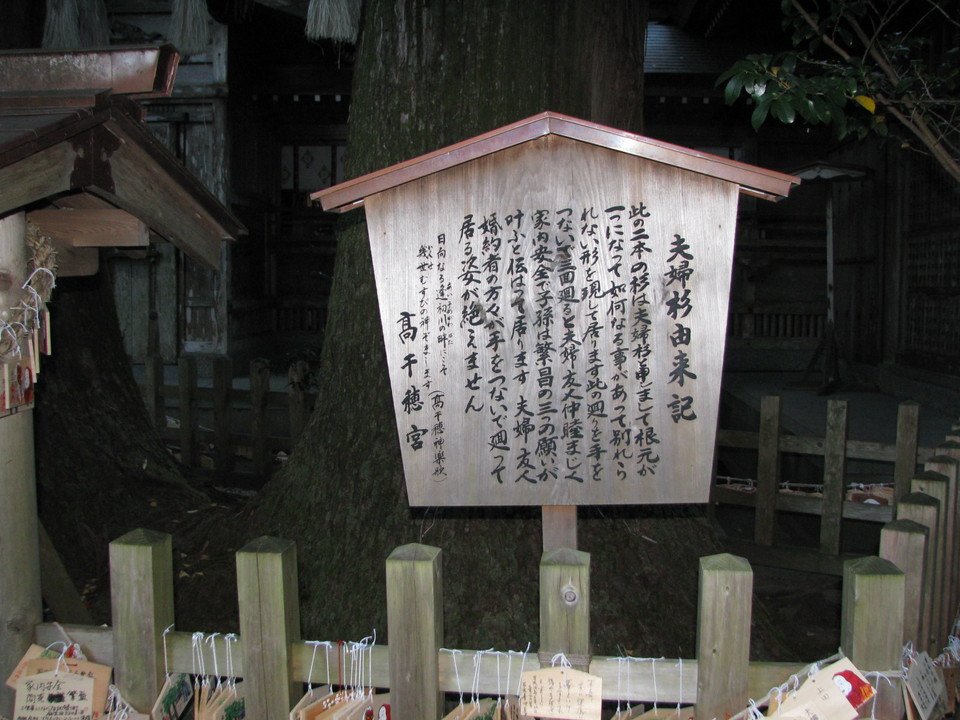 夫婦杉由来記
此の二本の杉は夫婦杉と申しまして根元が
一つになって如何なる事があって別れら
れない形を現して居ります此の廻りを手を
つないで三回廻ると夫婦友人仲睦まじく
家内安全で子孫は繁昌の三つの願いが
叶ふと伝はって居ります 夫婦友人
婚約者の方々が手をつないで廻って
居る姿が絶えません
日向なる逢初川の畔にこそ
幾世むすびの神ぞまします(高千穂神楽歌)
高千穂宮
家内安全